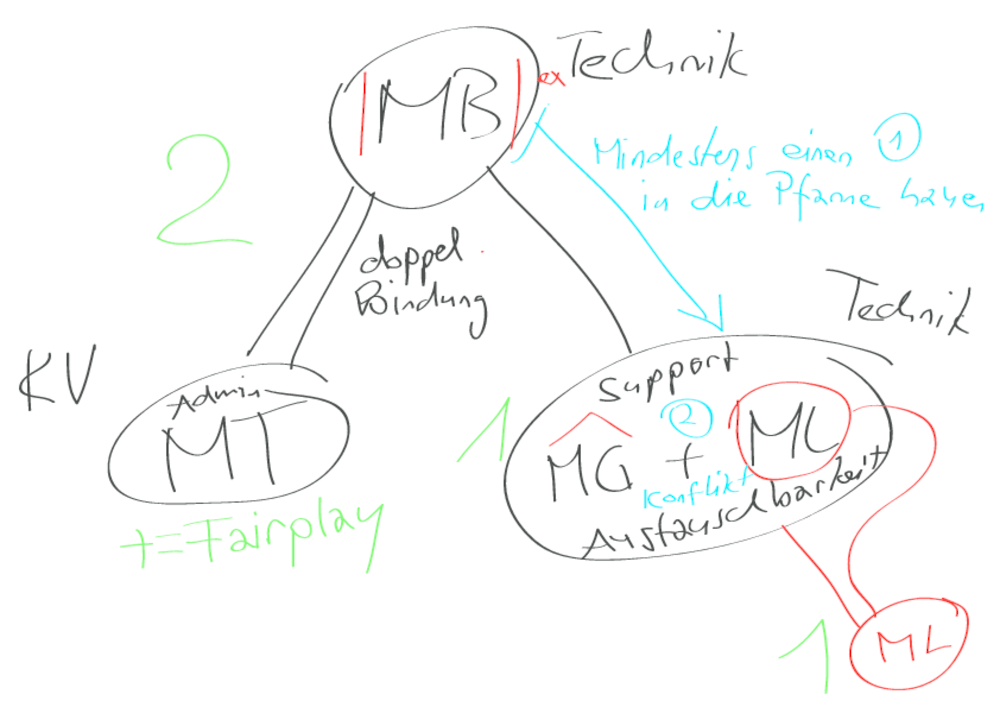 MB
ex Technik
2
Mindestens einen 1
in die Pfanne hauen
doppel
Bindung
Technik
KV
Admin
MT
+=Fairplay
1
Support
2
MG + ML
Konflikt
Austauschbarkeit
1
ML